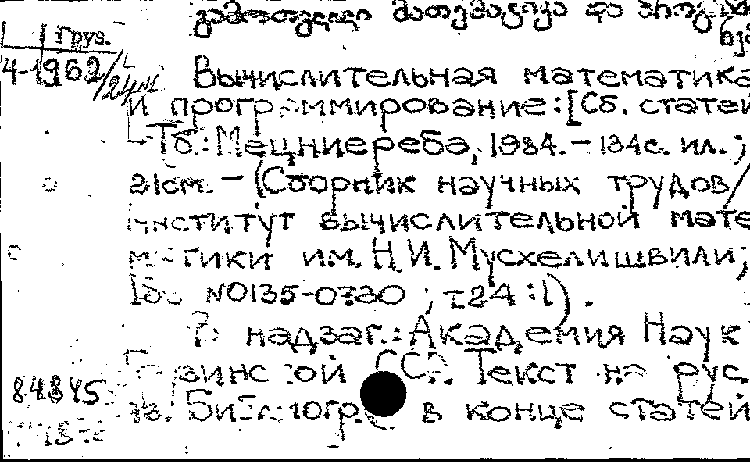 გამოთვლითი მათემატიკა და პროგ
Груз.
4-1962/24
Вычислительная математика
и программирование: [Сб. статей
-Тб.: Мецниереба, 1984. - 134с. ил.;
21см. - (Сборник научных трудов/
институт вычислительной мате
матики им. Н.И. Мусхелишвили;
ISSN 0135-0730; т24:1).
надзаг.: Академия Наук
Грузинской ССР. Текст на рус.
яз. Библиогр. в конце статей
84845